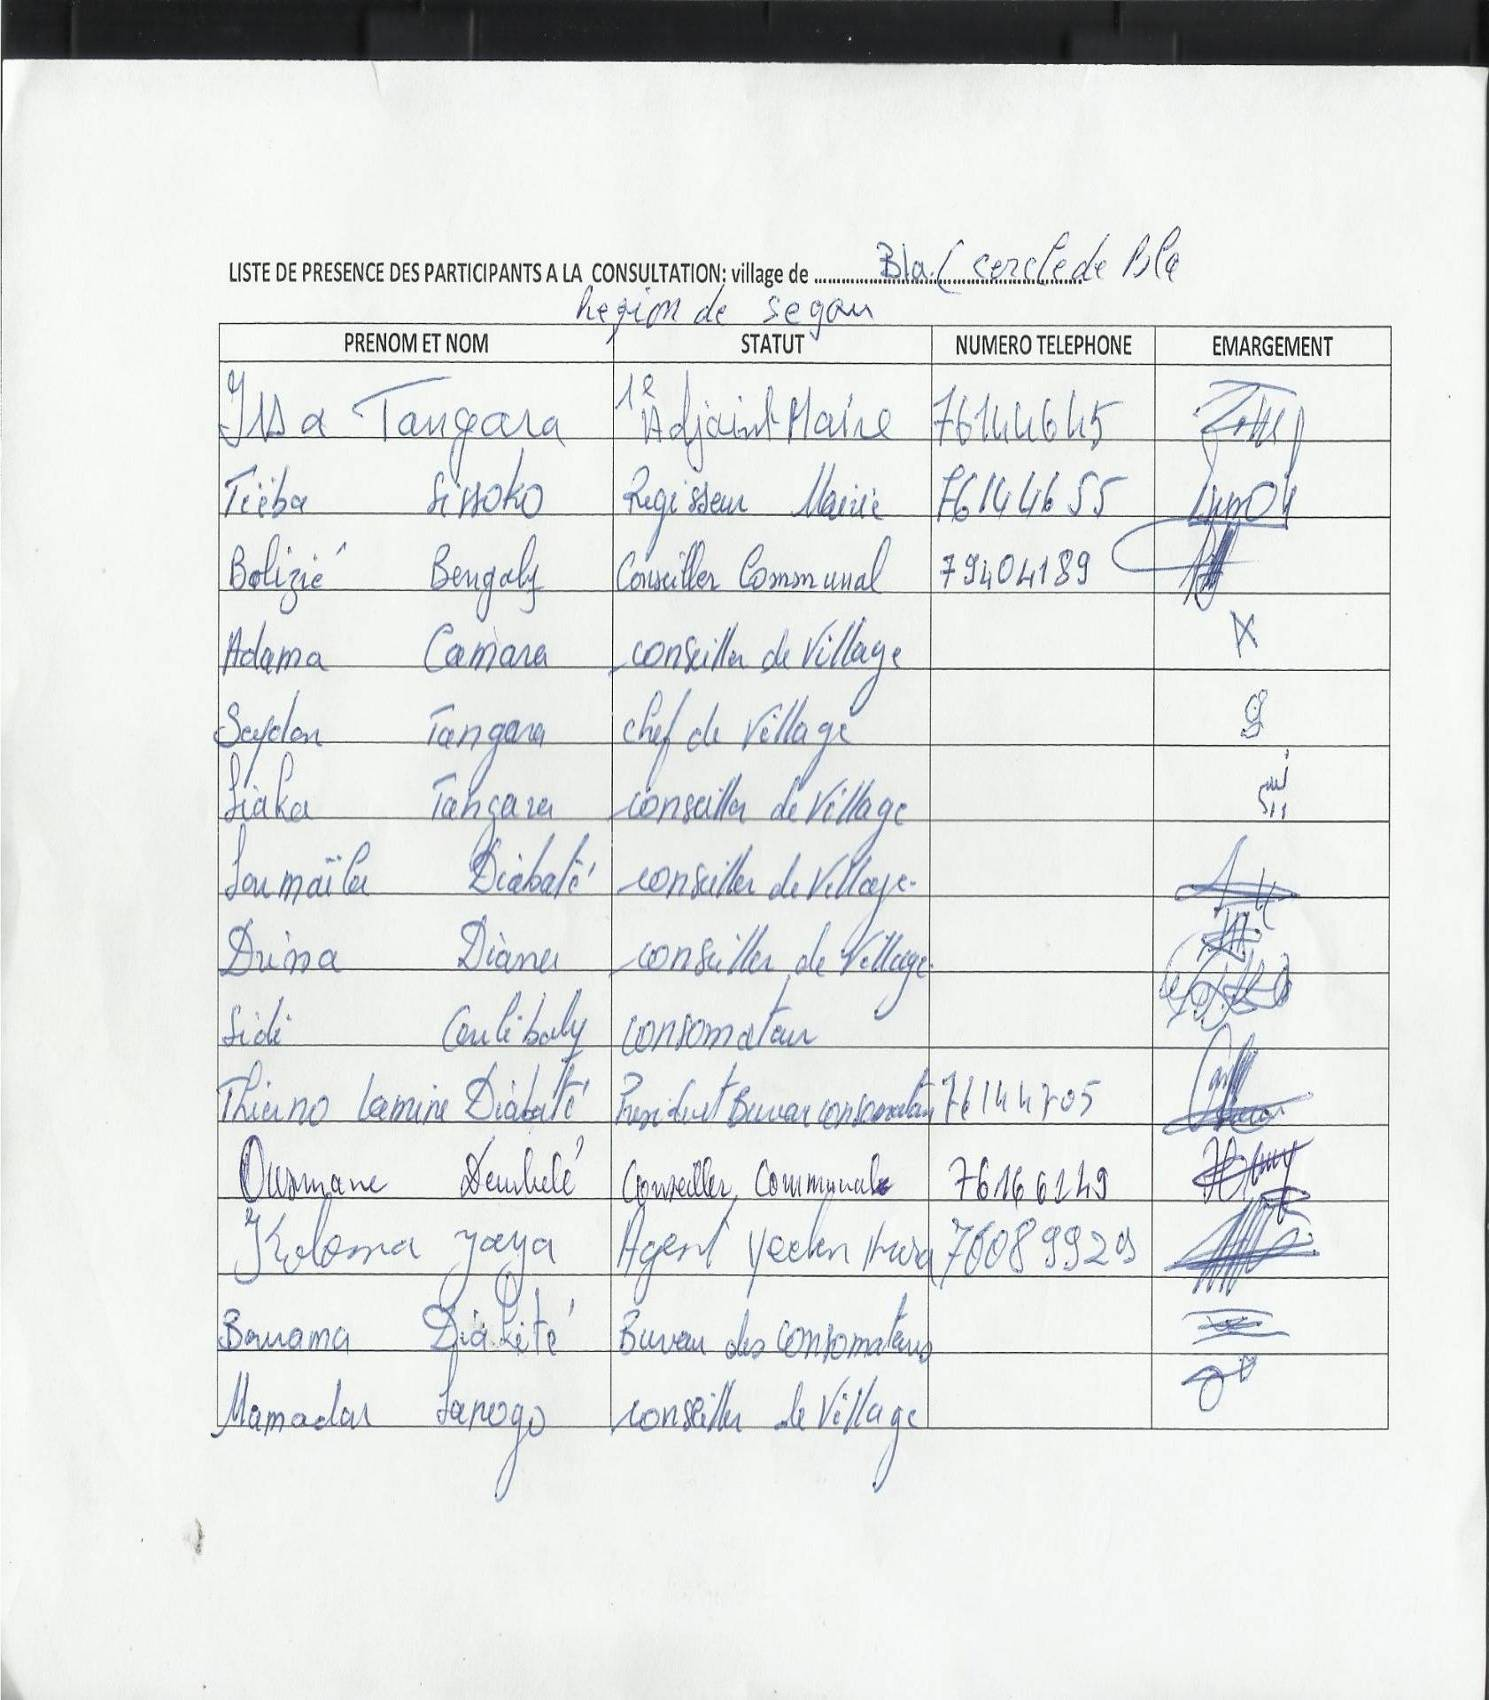 LISTE DE PRESENCE DES PARTICIPANTS A LA CONSULTATION: village de ........ Bla. ( cercle de Bla
Region de Segou
PRENOM ET NOM STATUT NUMERO TELEPHONE EMARGEMENT
Issa Tangara 1e Adjoint Maire 76144645
Tièba Sissoko Regisseur Mairie 76144655
Bolizié Bengaly Conseiller Communal 79404189
Adama Camara conseiller de Village
Seydou Tangara chef de Village
Siaka Tangara conseiller de Village
Soumaïla Diabaté conseiller de Village
Drissa Diarra conseiller de Village
Sidi Coulibaly consomateur
Thierno Lamine Diabaté President Bureau consomateur 76144705
Ousmane Dembelé Conseiller Communal 76166149
Koloma Yaya Agent Yeelen Kura 76089929
Bourama Diakité Bureau des consomateurs
Mamadou Sanogo conseiller de Village